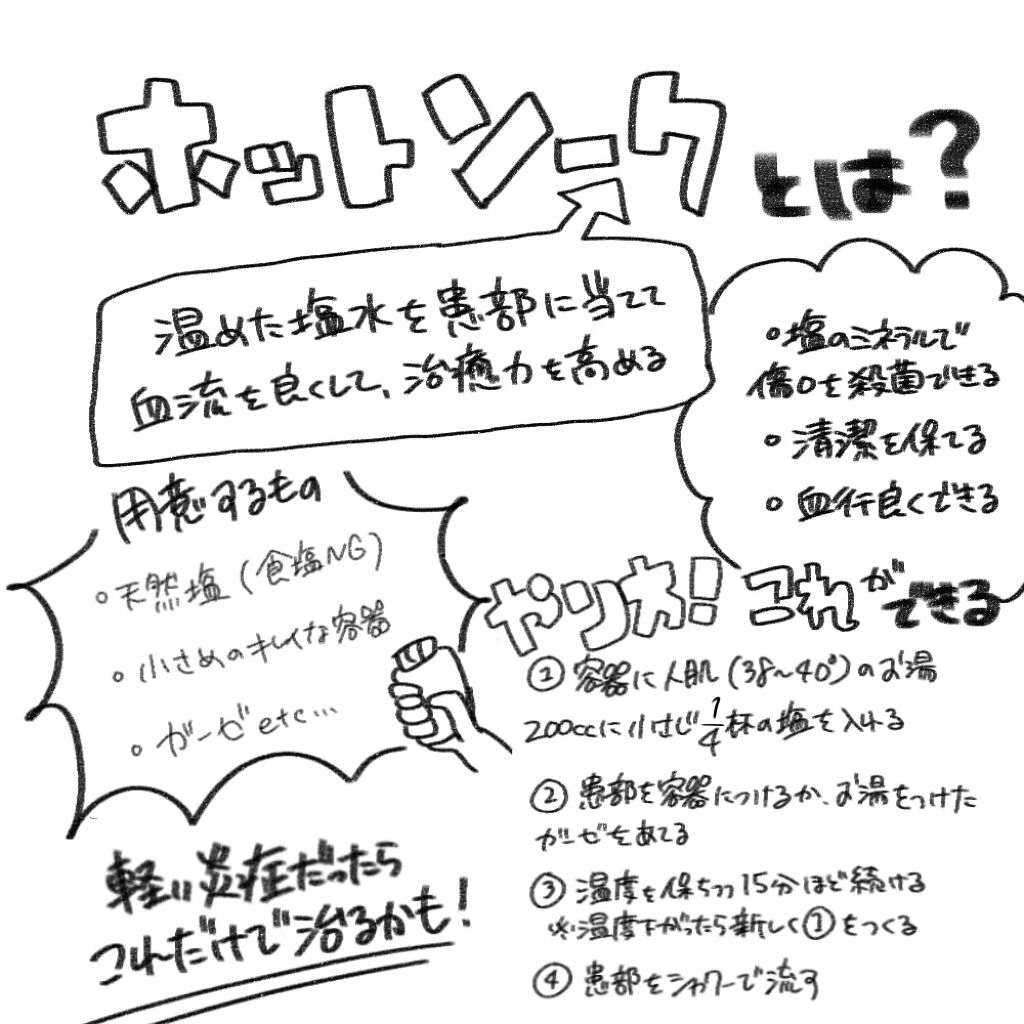 ホットソークとは?
温めた塩水を患部に当てて
血流を良くして、治癒力を高める
。塩のミネラルで
傷口を殺菌できる
。清潔を保てる
。血行良くできる
これができる
用意するもの
。天然塩(食塩NG)
。小さめのキレイな容器
。ガーゼetc…
軽い炎症だったら
これだけで治るかも!
ヤリカ!
① 容器に人肌(38~40°)のお湯
200ccに小さじ1/4杯の塩を入れる
② 患部を容器につけるか、お湯をつけた
ガーゼをあてる
③ 温度を保ちつつ15分ほど続ける
※温度下がったら新しく①をつくる
④ 患部をシャワーで流す